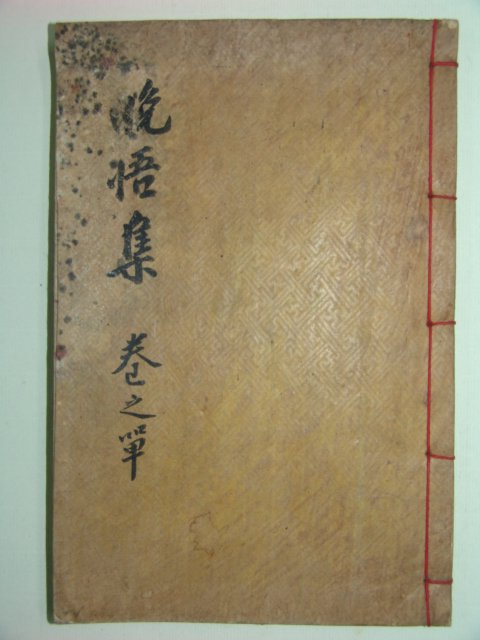 晩悟集 卷之單